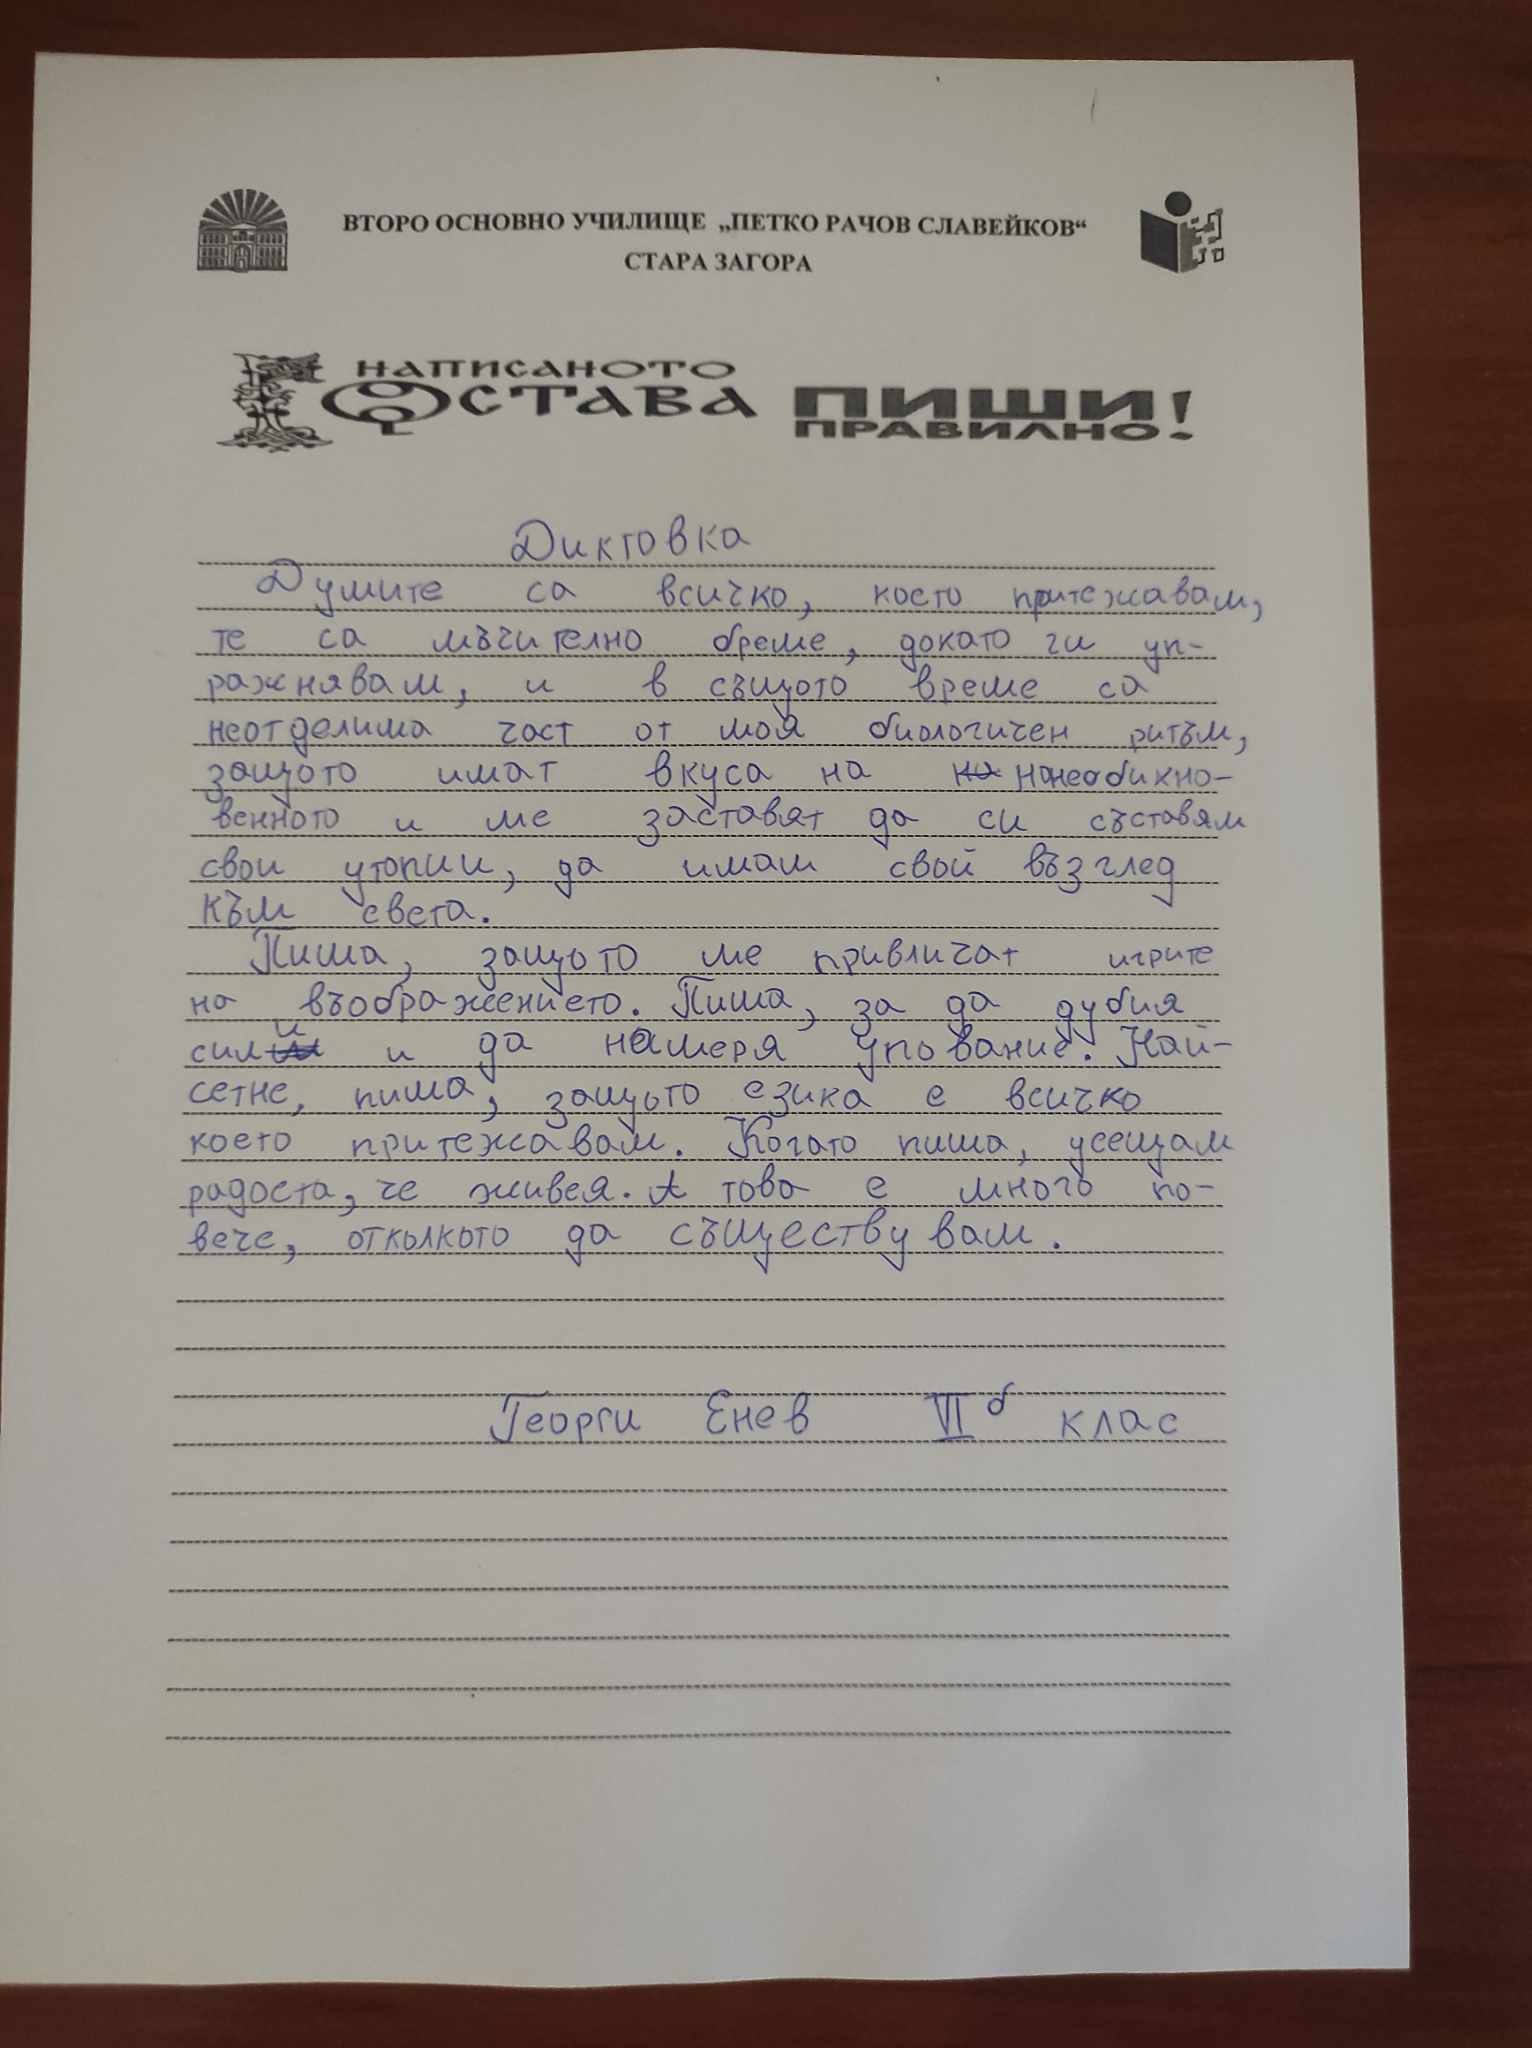 ВТОРО ОСНОВНО УЧИЛИЩЕ „ПЕТКО РАЧОВ СЛАВЕЙКОВ“
СТАРА ЗАГОРА
НАПИСАНОТО
ОСТАВА ПИШИ
ПРАВИЛНО!
Диктовка
Думите са всичко, което притежавам,
те са мъчително бреме, докато ги уп-
ражнявам, и в същото време са
неотделима част от моя биологичен ритъм,
защото имат вкуса на на нанеобикно-
венното и ме заставят да си съставям
свои утопии, да имам свой възглед
към света.
Пиша, защото ме привличат игрите
на въображението. Пиша, за да дубия
сили и да намеря упование. Най-
сетне, пиша, защото езика е всичко
което притежавам. Когато пиша, усещам
радоста, че живея. А това е много по-
вече, отколкото да съществувам.
Георги Енев VI б клас